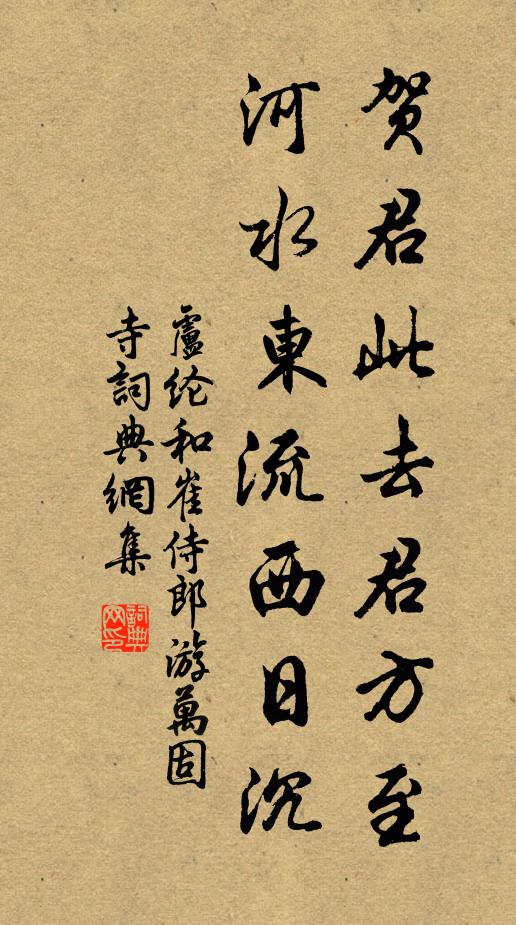 贺君此去君方至
河水東流西日沉
盧纶和崔侍郎游萬固
寺詞典網集
詞典网印